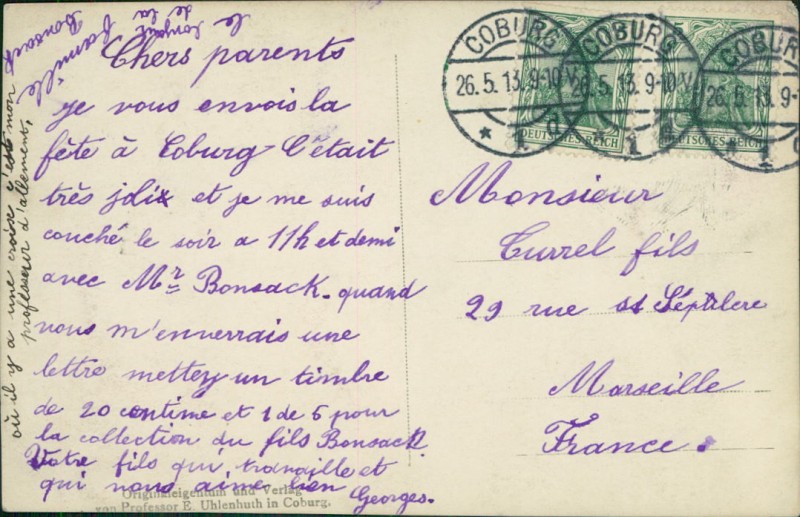 le bonjour
de la
famille
Bonsack
où il y a une croix s'est mon
professeur d'allement.
Chers parents
je vous envois la
fête à Coburg C'était
très joli et je me suis
couché le soir a 11h et demi
avec Mr Bonsack. quand
vous m'enverrais une
lettre mettez un timbre
de 20 centime et 1 de 5 pour
la collection du fils Bonsack
Votre fils qui travaille et
qui vous aime bien
Georges.
Originaleigentum und Verlag
von Professor E. Uhlenhuth in Coburg.
COBURG
26.5.13.9-10V
* 1 d
COBURG
26.5.13.9-10V
* 1
COBURG
26.5.13.9-
1
DEUTSCHES REICH
DEUTSCHES REICH
Monsieur
Currel fils
29 rue
Marseille
France.